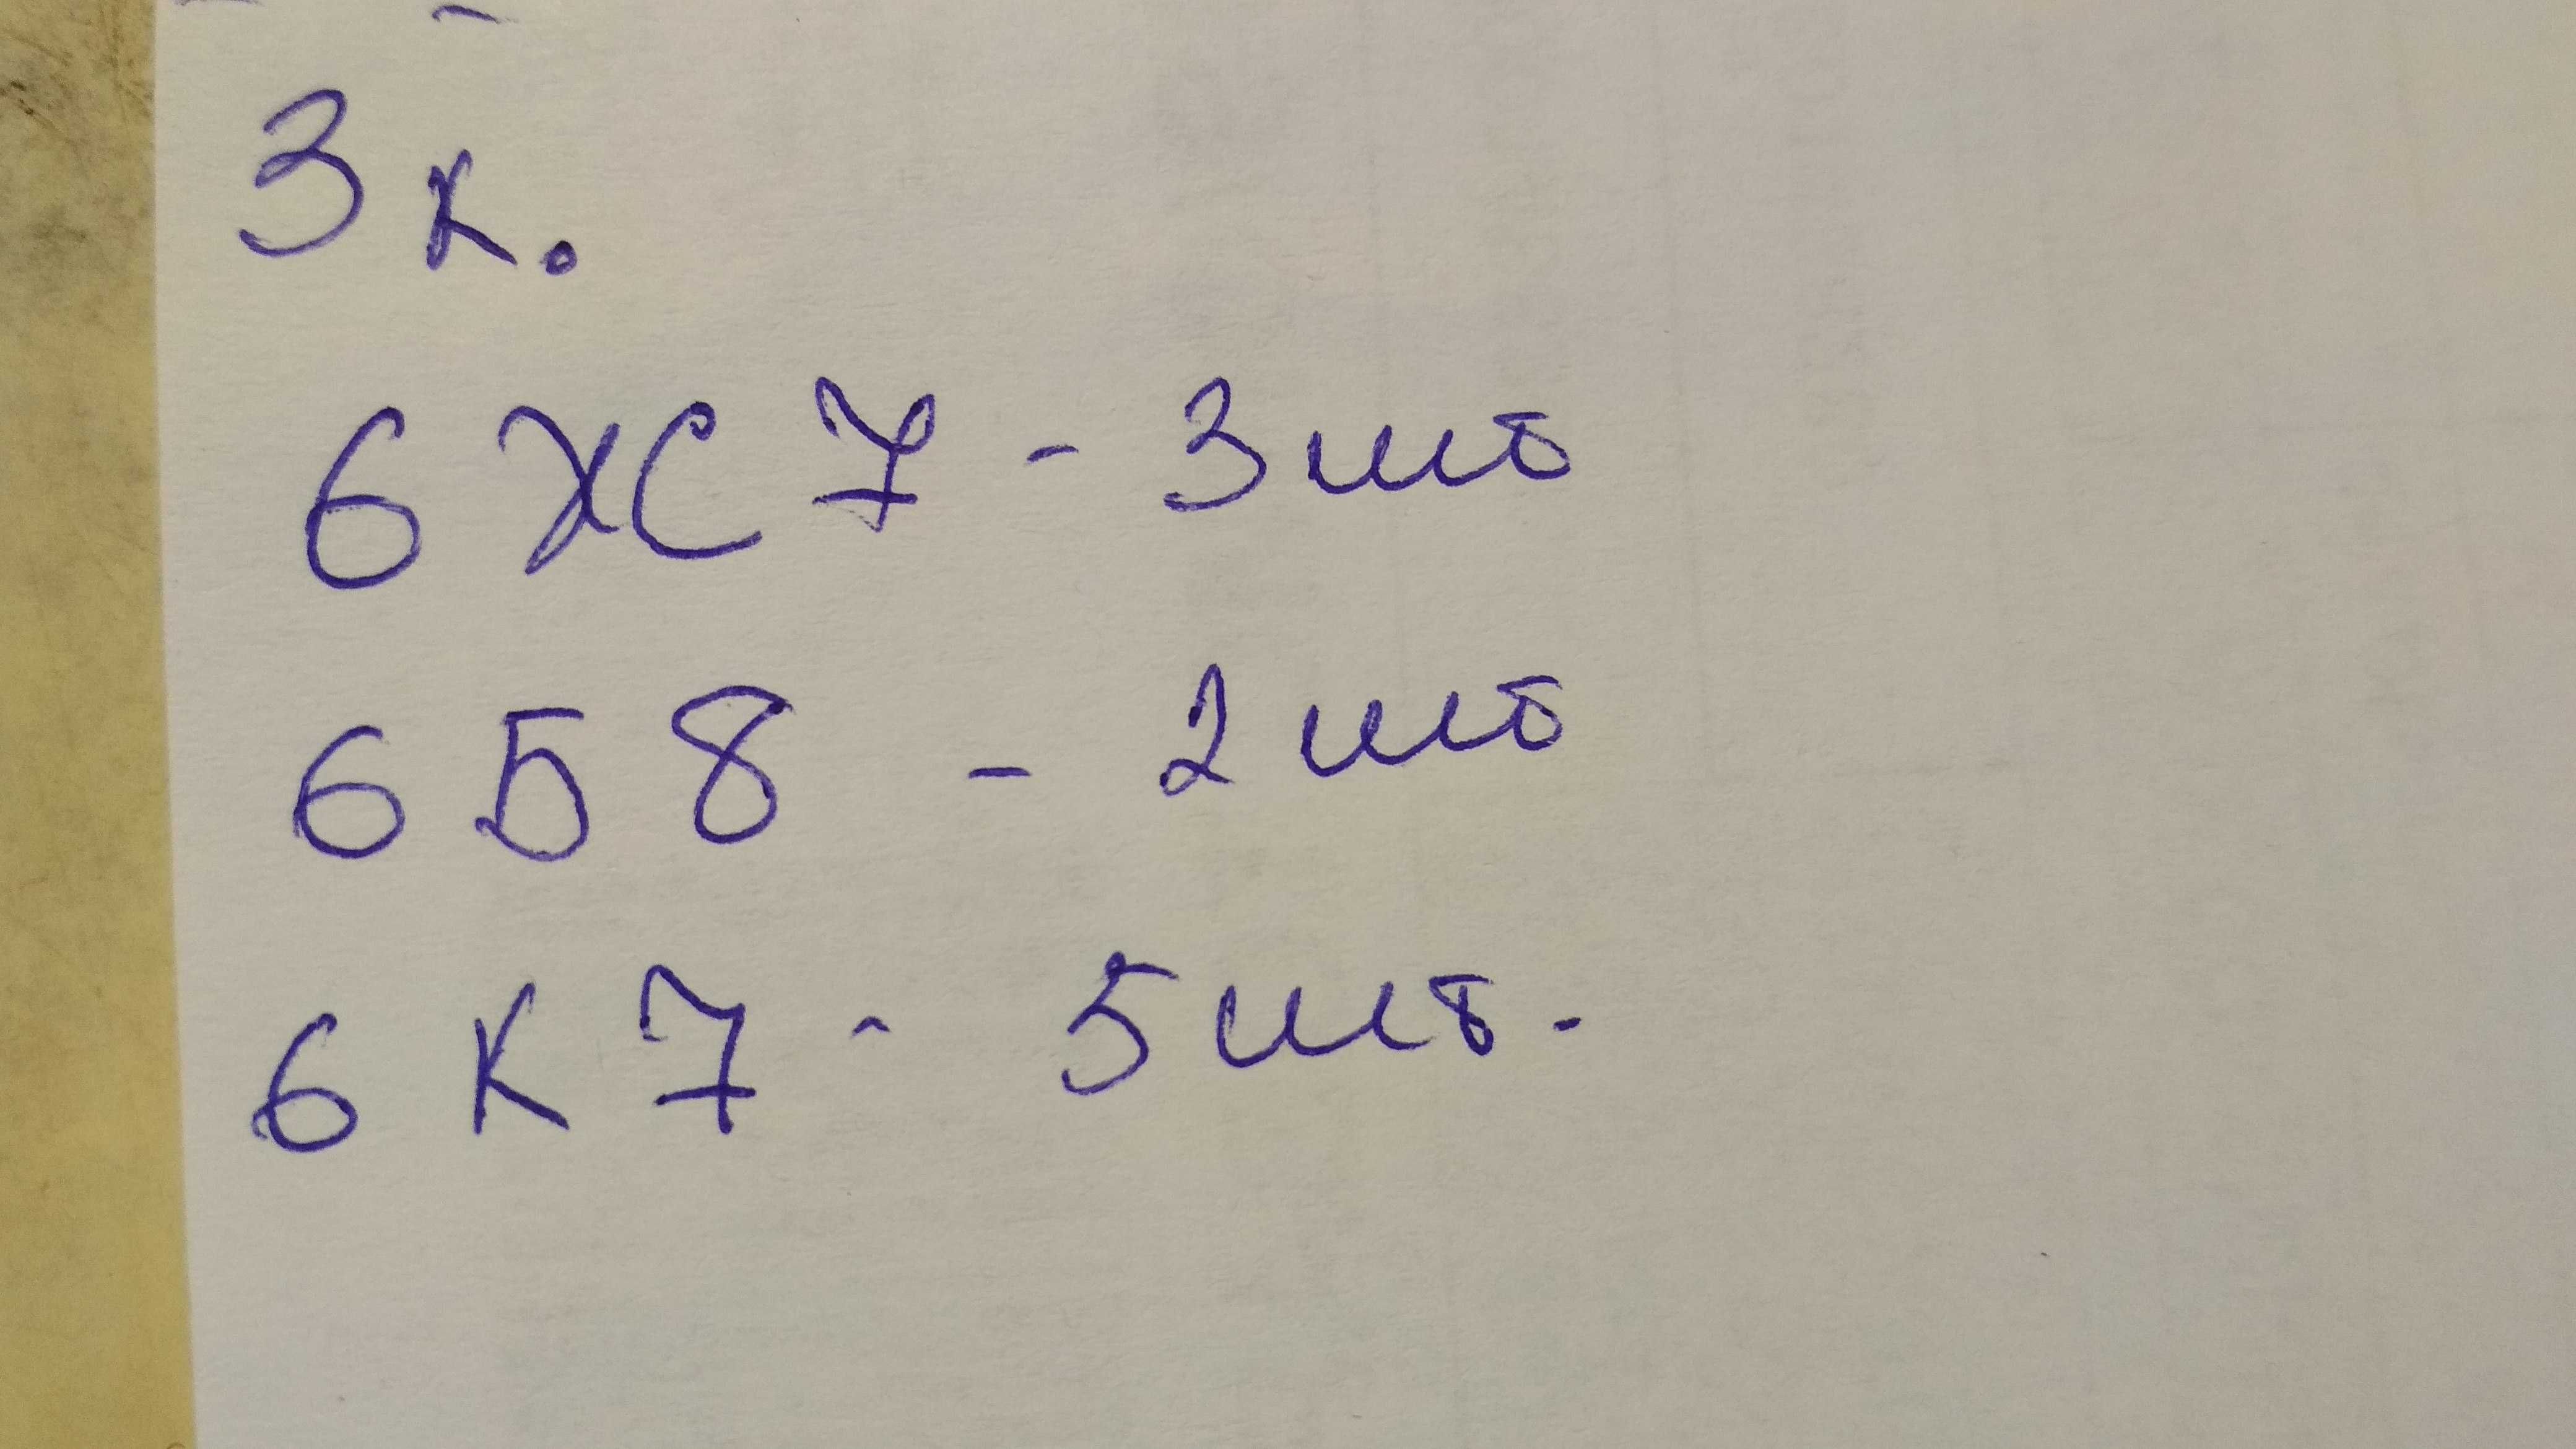 3 к.
6 Ж 7 - 3 шт
6 Б 8 - 2 шт
6 К 7 - 5 шт.